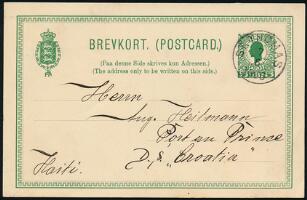 BREVKORT. (POSTCARD.)
(Paa denne Side skrives kun Adressen.)
(The address only to be written on this side.)
Herrn
Aug. Heilmann
Port au Prince
D. S. "Croatia"
Haiti.